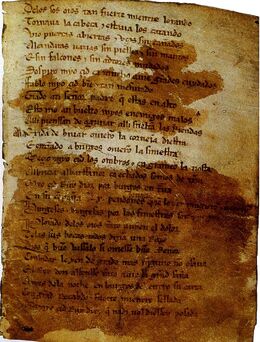 Delos sos oios tan fuerte mientre lorando
Tornaua la cabeça & estaua los catando
Vio puertas abiertas & vços sin cañados
Alcandaras uazias sin pielles & sin mantos
E sin falcones & sin adtores mudados
Sospiro myo çid ca mucho auie grandes cuydados
Fablo myo çid bien & tan mesurado
señor padre que estas en alto
Esto me an buelto myos enemigos malos
Alli pienssan de aguiiar alli sueltan las Riendas
de biuar ouieron la corneia diestra
entrando a burgos ouieron la siniestra
Meçio myo çid los ombros & en grameo la tiesta
albarffanez ca echados somos de tierra
Myo çid Ruy diaz por burgos en
En su pendones
Burgeses & burgesas por las finiestras son
Plorando delos oios tanto auyen el dolor
Delas sus bocas todos dizian una Razon
Dios que buen vassalo si ouiesse buen Señor
Conbidar le yen de grado mas ninguno no osaua
El Rey don alfonsso tanto auie la grand saña
Antes dela noche en burgos del entro su carta
Con grand Recabdo & fuerte mientre sellada
Que a myo çid Ruy diaz que nadi nol diessen posada